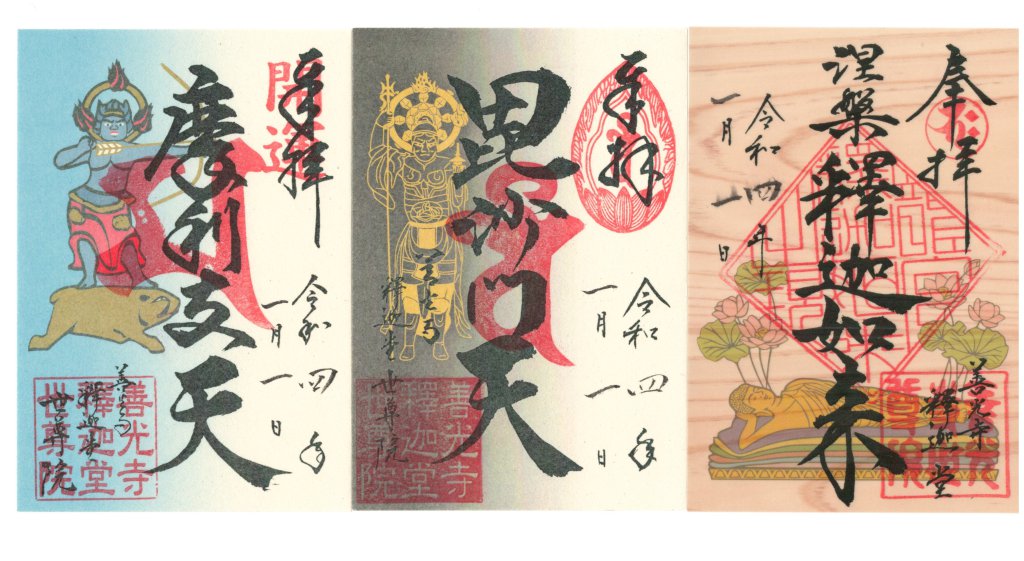 奉拝
開運
摩利支天
令和四年
一月一日
善光寺
釋迦堂
世尊院
善光寺
釋迦堂
世尊院
奉拝
毘沙門天
令和四年
一月一日
善光寺
釋迦堂
世尊院
善光寺
釋迦堂
世尊院
奉拝
涅槃釋迦如来
令和四年
一月一日
善光寺
釋迦堂